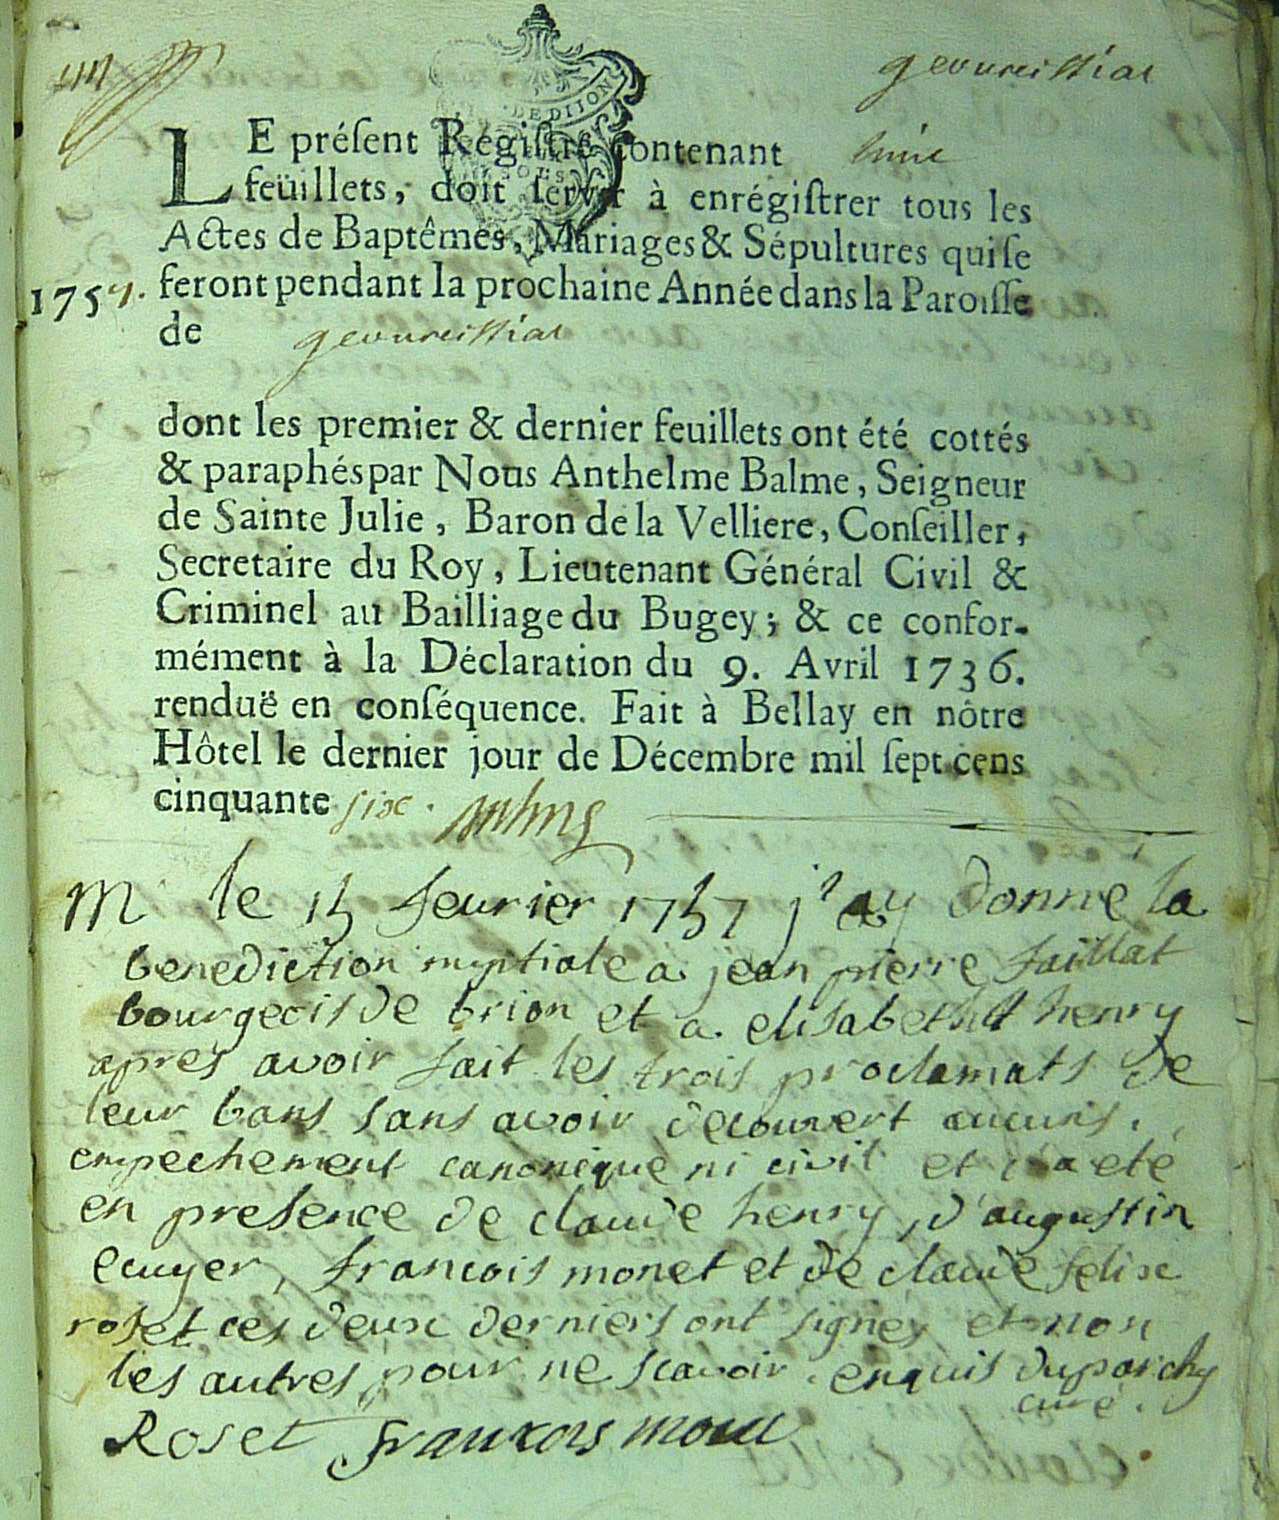 gevureissiat
DE DIJON
LE préſent Régiſtre contenant
feüillets, doit ſervir à enrégiſtrer tous les
Actes de Baptêmes, Mariages & Sépultures qui ſe
1757. feront pendant la prochaine Année dans la Paroiſſe
de gevureissiat
dont les premier & dernier feuillets ont été cottés
& paraphés par Nous Anthelme Balme, Seigneur
de Sainte Julie, Baron de la Velliere, Conſeiller,
Secretaire du Roy, Lieutenant Général Civil &
Criminel au Bailliage du Bugey; & ce confor-
mément à la Déclaration du 9. Avril 1736.
renduë en conſéquence. Fait à Bellay en nôtre
Hôtel le dernier jour de Décembre mil ſept cens
cinquante six.
M le 15 feurier 1757 j'ay donné la
benediction nuptiale a jean pierre faillat
bourgeois de brion et a elisabeth henry
apres avoir fait les trois proclamats de
leur bans sans avoir decouvert aucuns
empechement canonique ni civil et ç'a eté
en presence de claude henry, d'augustin
ecuyer, francois monet et de claude felix
roset ces deux derniers ont signés et non
les autres pour ne scavoir enquis duparchy
curé.
Roset francois monet